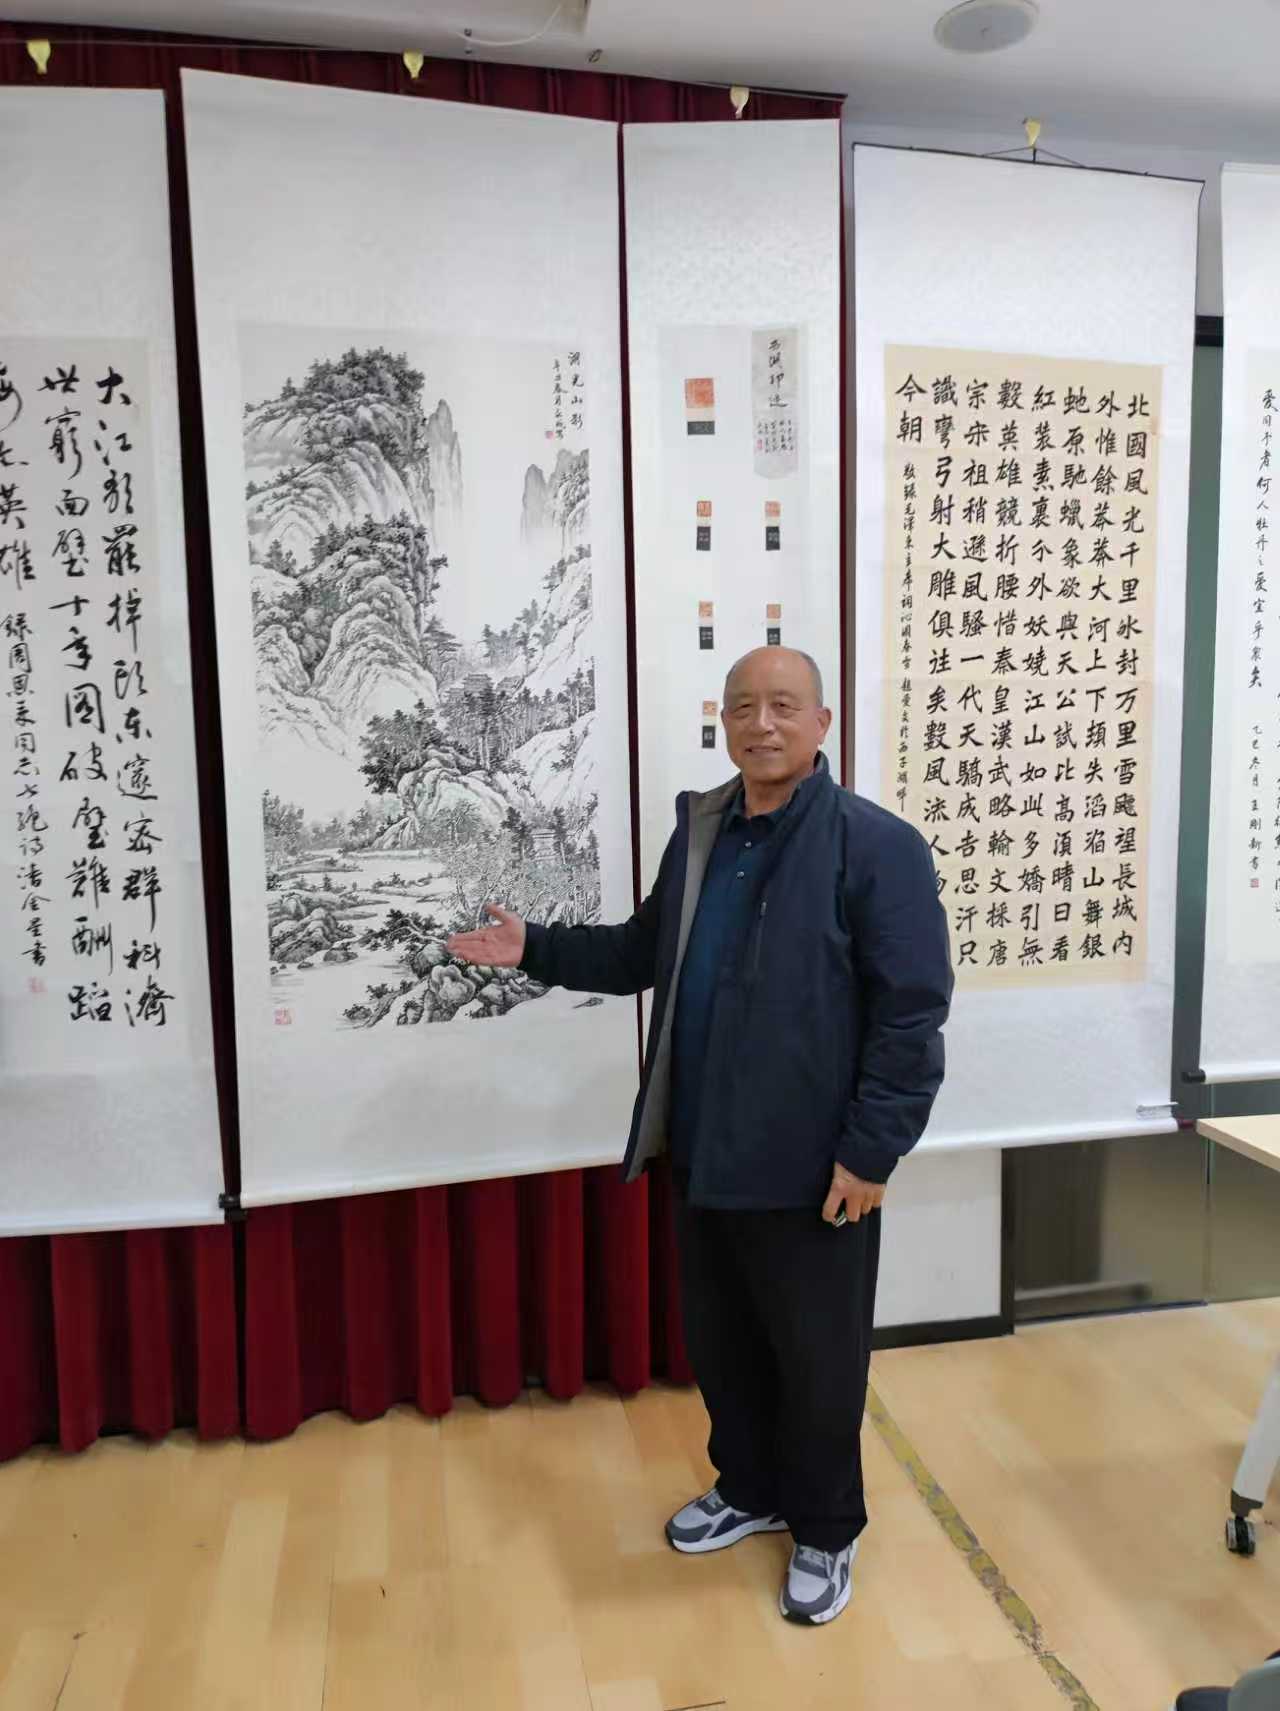 大江歌罷掉頭东邃密群科濟
世窮面壁十年圖破壁難酬蹈
海亦英雄 録周恩来同志七绝诗 潘金星書
湖光山影
辛丑春月
西湖印迹
北國風光千里氷封万里雪飄望長城内
外惟餘莽莽大河上下頓失滔滔山舞銀
虵原馳蠟象欲與天公試比高須晴日看
紅装素裹分外妖嬈江山如此多嬌引無
數英雄競折腰惜秦皇漢武略輸文採唐
宗宋祖稍遜風騷一代天驕成吉思汗只
識彎弓射大雕俱往矣數風流人物
今朝 敬録毛澤東主席詞沁園春雪 趙愛文於西子湖畔
爱同予者何人牡丹之爱宜乎衆矣
乙巳冬月王刚新書